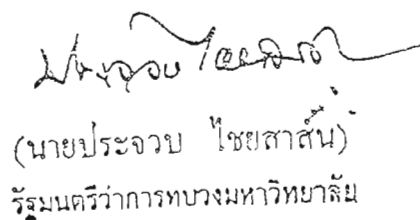 ประจวบ ไชยสาส์น
(นายประจวบ ไชยสาส์น)
รัฐมนตรีว่าการทบวงมหาวิทยาลัย